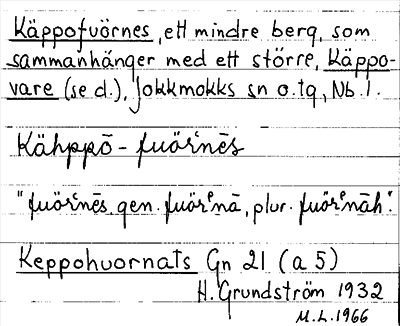 Käppofuörnes, ett mindre berg, som
sammanhänger med ett större, Käppo-
vare (se d.), Jokkmokks sn o. tg, Nb. l.
Kähppō - fuörᵉnēs
"fuörᵉnēs, gen. fuörᵉnā, plur. fuörᵉnāh".
Keppohuornats Gn 21 (a 5)
H. Grundström 1932
M.L. 1966